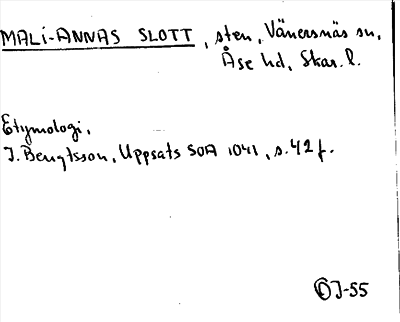 MALI-ANNAS SLOTT, sten, Vänersnäs sn,
Åse hd, Skar. l.
Etymologi,
J. Bengtsson, Uppsats SOA 1041, s. 42 f.
ÖJ-55